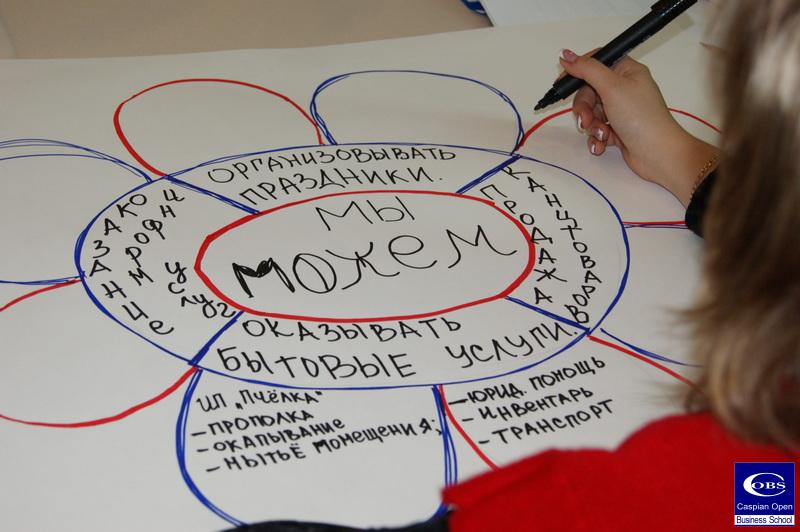 ОРГАНИЗОВЫВАТЬ
ПРАЗДНИКИ.
ПРОДАЖА
КАНЦТОВАРОВ
МЫ
МОЖЕМ
услуг
ОКАЗЫВАТЬ
БЫТОВЫЕ УСЛУГИ.
ИП „Пчёлка"
- ПРОПОЛКА
- ОКАПЫВАНИЕ
- МЫТЬЁ ПОМЕЩЕНИЯ;
- ЮРИД. ПОМОЩЬ
- ИНВЕНТАРЬ
- ТРАНСПОРТ
COBS
Caspian Open
Business School